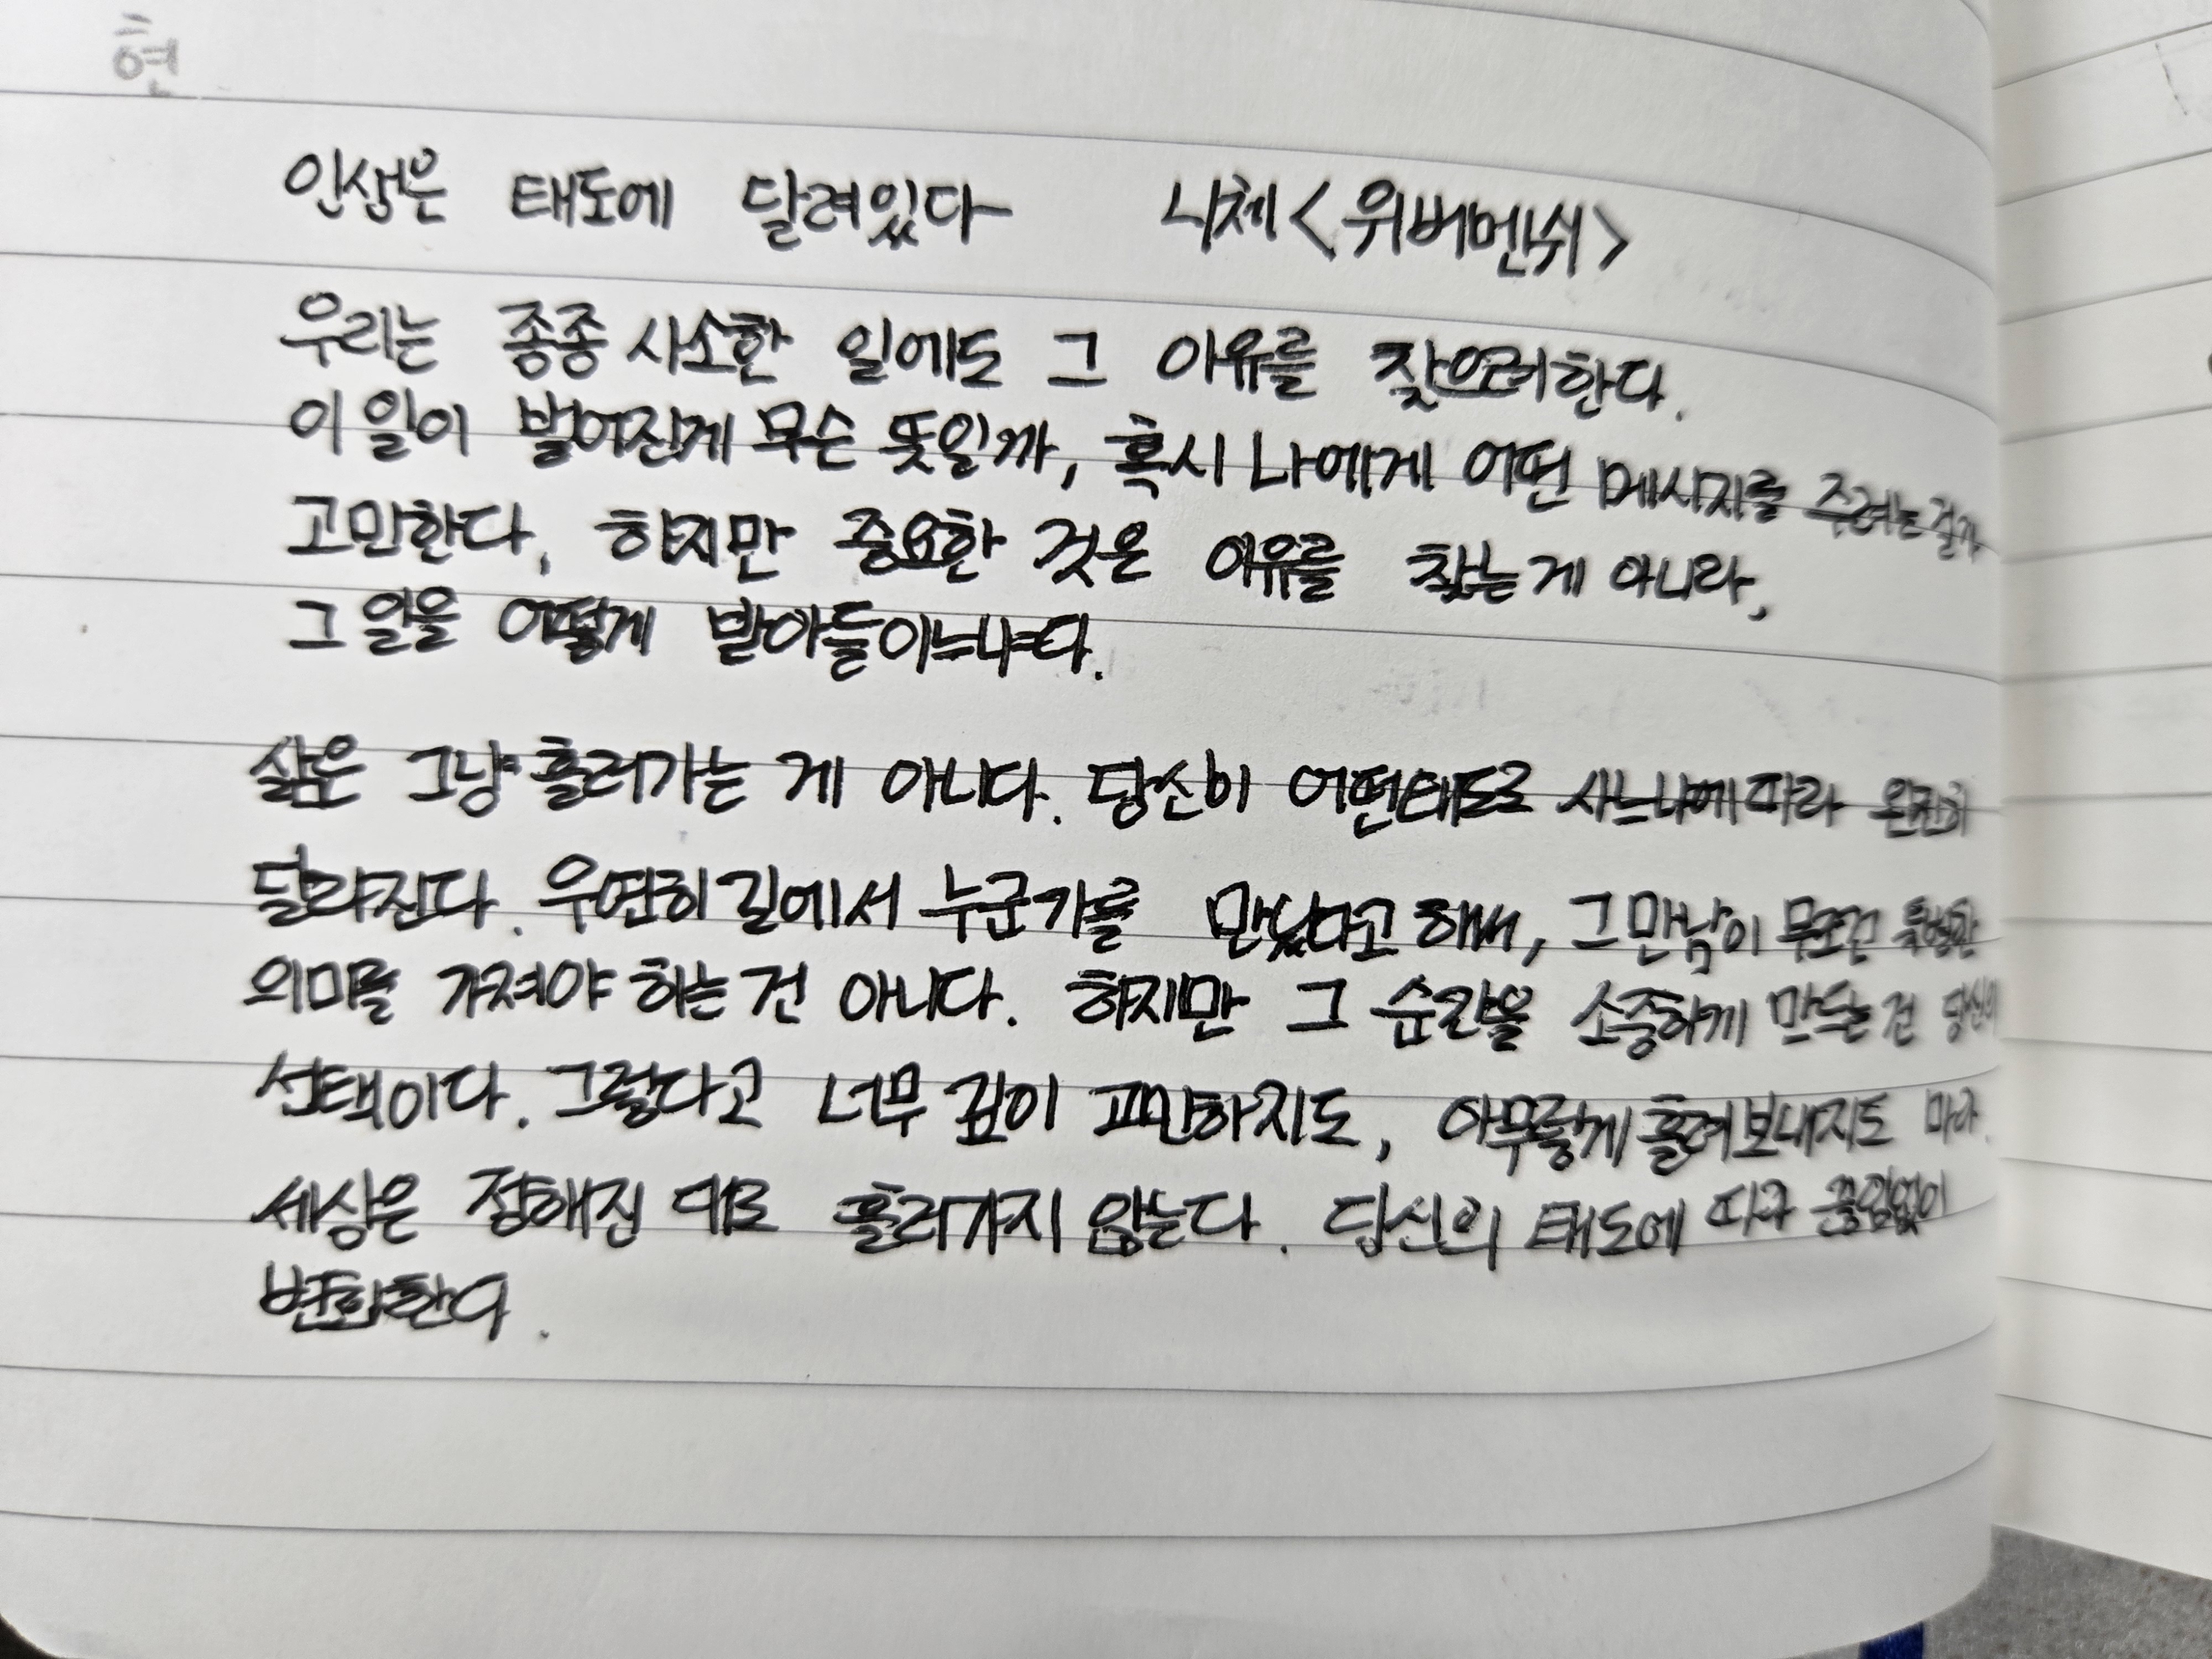 현
인생은 태도에 달려있다- 니체 <위버멘쉬>
우리는 종종 사소한 일에도 그 이유를 찾으려한다.
이 일이 벌어진게 무슨 뜻일까, 혹시 나에게 어떤 메시지를 주려는걸까
고민한다, 하지만 중요한 것은 이유를 찾는 게 아니라,
그 일을 어떻게 받아들이느냐다.
삶은 그냥 흘러가는 게 아니다. 당신이 어떤태도로 사느냐에 따라 완전히
달라진다. 우연히 길에서 누군가를 만났다고 해서, 그 만남이 무조건 특별한
의미를 가져야 하는 건 아니다. 하지만 그 순간을 소중하게 만드는 건 당신의
선택이다. 그렇다고 너무 깊이 고민하지도, 아무렇게 흘려보내지도 마라.
세상은 정해진 대로 흘러가지 않는다. 당신의 태도에 따라 끊임없이
변화한다.